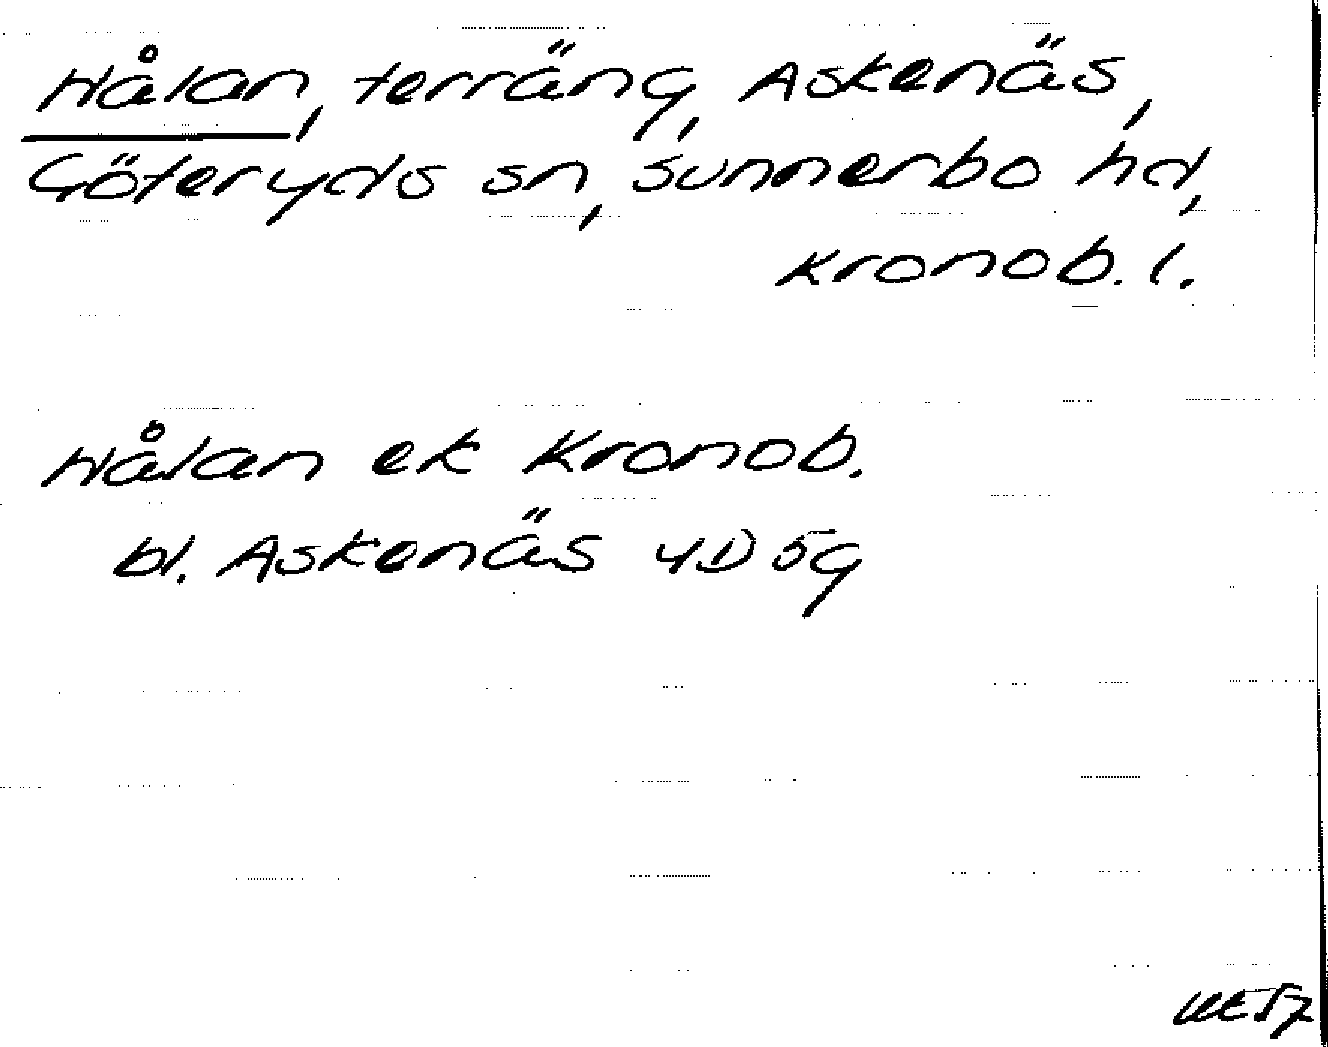 Hålan, terräng, Askenäs,
Göteryds sn, Sunnerbo hd,
Kronob. l.
Hålan ek Kronob.
bl. Askenäs 4D 5g